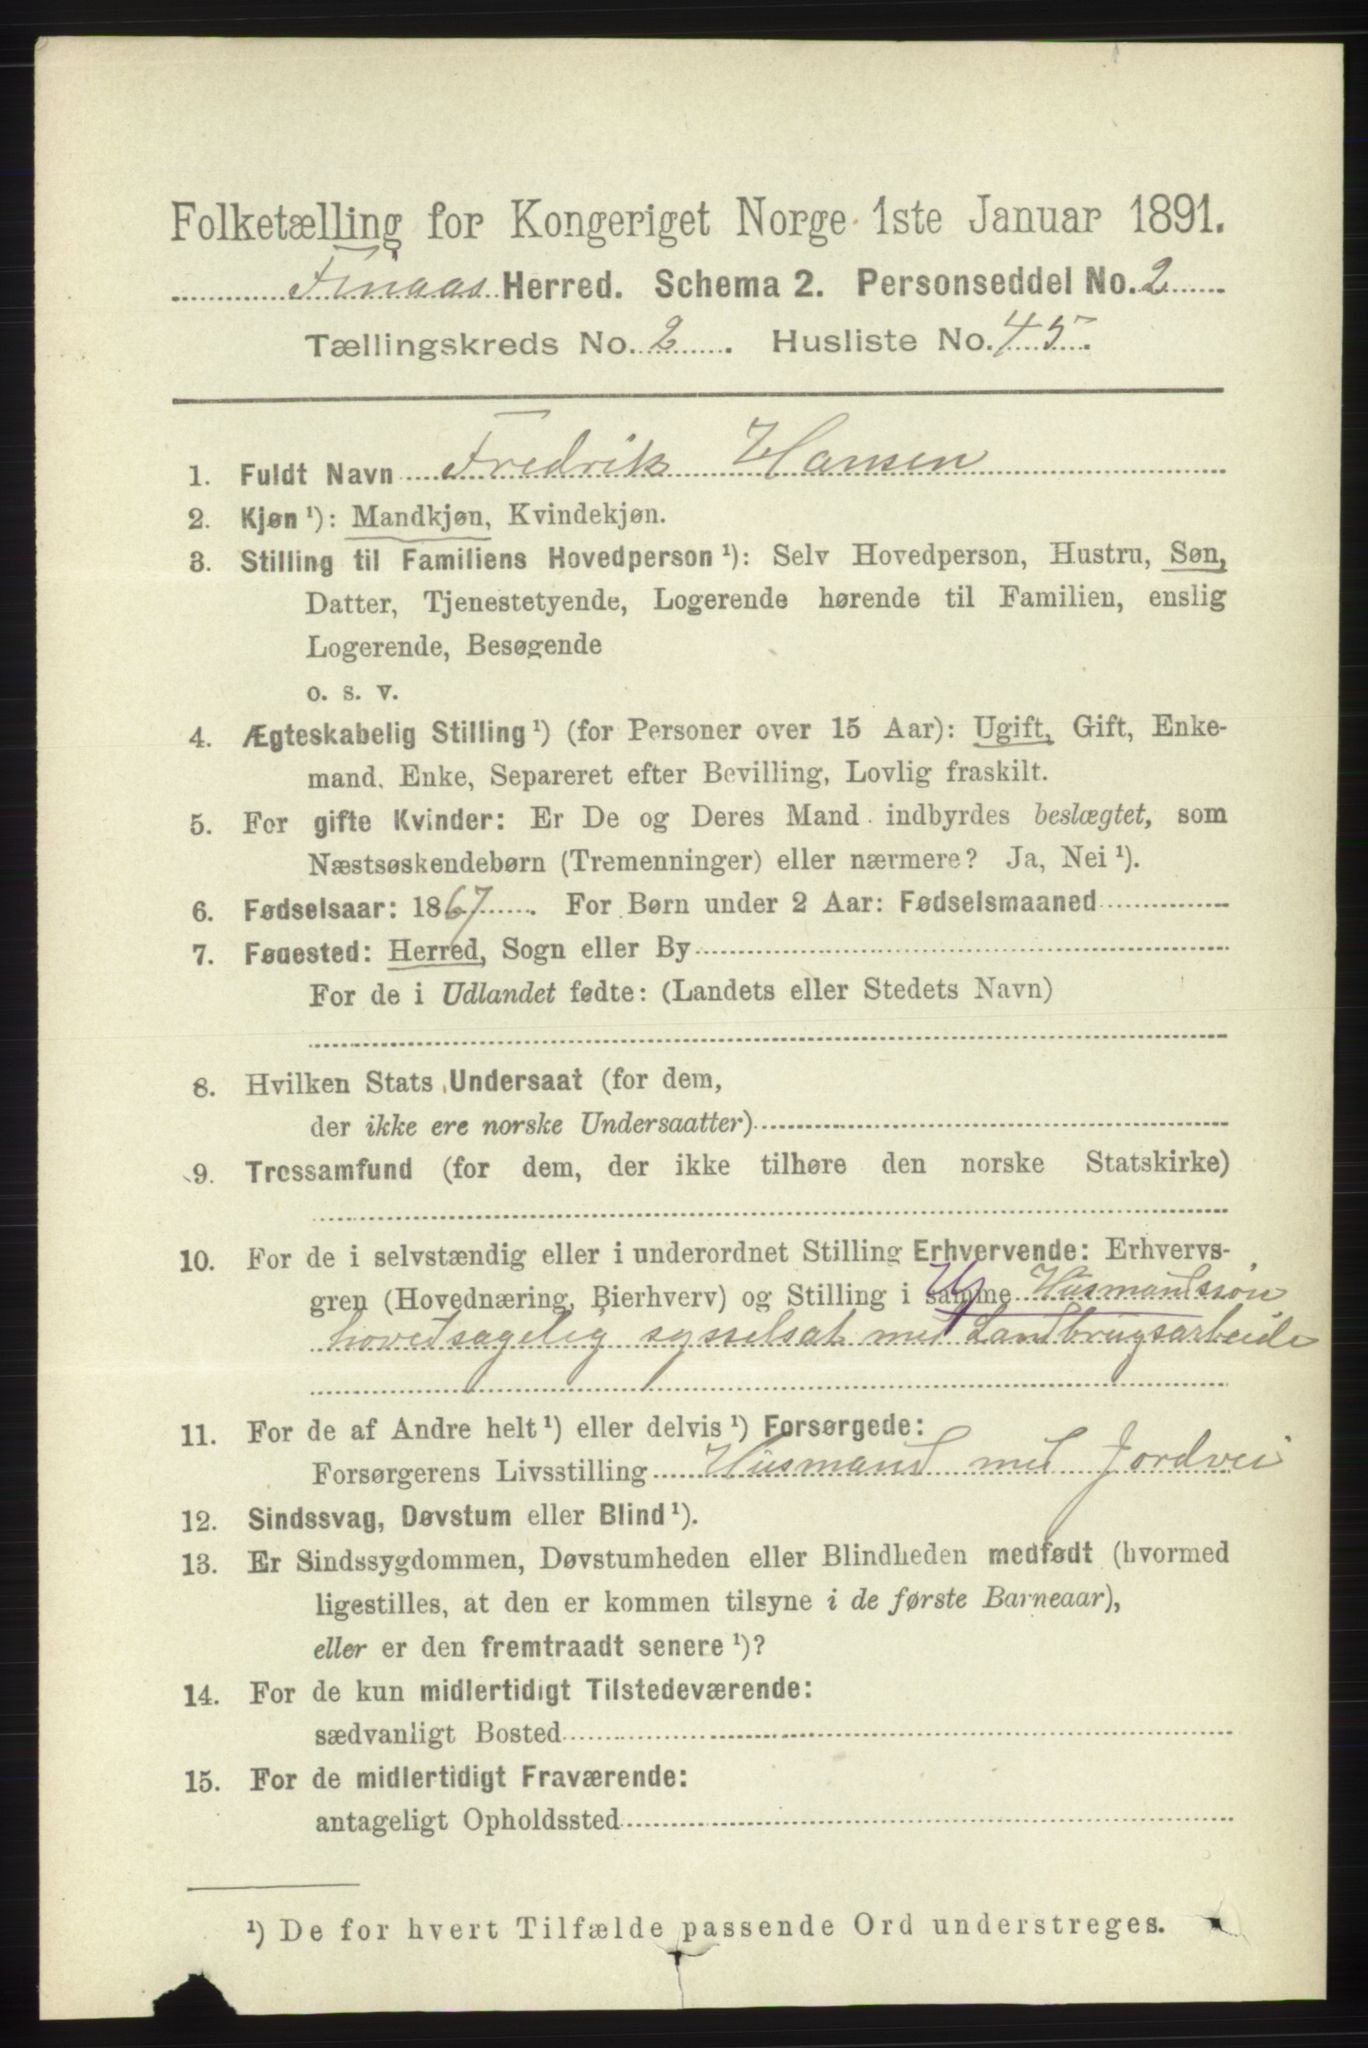 Folketælling for Kongeriget Norge 1ste Januar 1891.
Finaas Herred. Schema 2. Personseddel No. 2
Tællingskreds No. 2. Husliste No. 45.
1. Fuldt Navn Fredrik Hansen
2. Kjøn ¹): Mandkjøn, Kvindekjøn.
3. Stilling til Familiens Hovedperson ¹): Selv Hovedperson, Hustru, Søn,
Datter, Tjenestetyende, Logerende hørende til Familien, enslig
Logerende, Besøgende
o. s. v.
4. Ægteskabelig Stilling ¹) (for Personer over 15 Aar): Ugift, Gift, Enke-
mand, Enke, Separeret efter Bevilling, Lovlig fraskilt.
5. For gifte Kvinder: Er De og Deres Mand indbyrdes beslægtet, som
Næstsøskendebørn (Tremenninger) eller nærmere? Ja, Nei ¹).
6. Fødselsaar: 1867. For Børn under 2 Aar: Fødselsmaaned
7. Føuested: Herred, Sogn eller By
For de i Udlandet fødte: (Landets eller Stedets Navn)
8. Hvilken Stats Undersaat (for dem,
der ikke ere norske Undersaatter)
9. Trossamfund (for dem, der ikke tilhøre den norske Statskirke)
10. For de i selvstændig eller i underordnet Stilling Erhvervende: Erhvervs-
gren (Hovednæring, Bierhverv) og Stilling i samme Husmandssøn
hovedsagelig sysselsat med Landbrugsarbeide
11. For de af Andre helt ¹) eller delvis ¹) Forsørgede:
Forsørgerens Livsstilling Husmand med Jordvei
12. Sindssvag, Døvstum eller Blind ¹).
13. Er Sindssygdommen, Døvstumheden eller Blindheden medfødt (hvormed
ligestilles, at den er kommen tilsyne i de første Barneaar),
eller er den fremtraadt senere ¹)?
14. For de kun midlertidigt Tilstedeværende:
sædvanligt Bosted
15. For de midlertidigt Fraværende:
antageligt Opholdssted
¹) De for hvert Tilfælde passende Ord understreges.